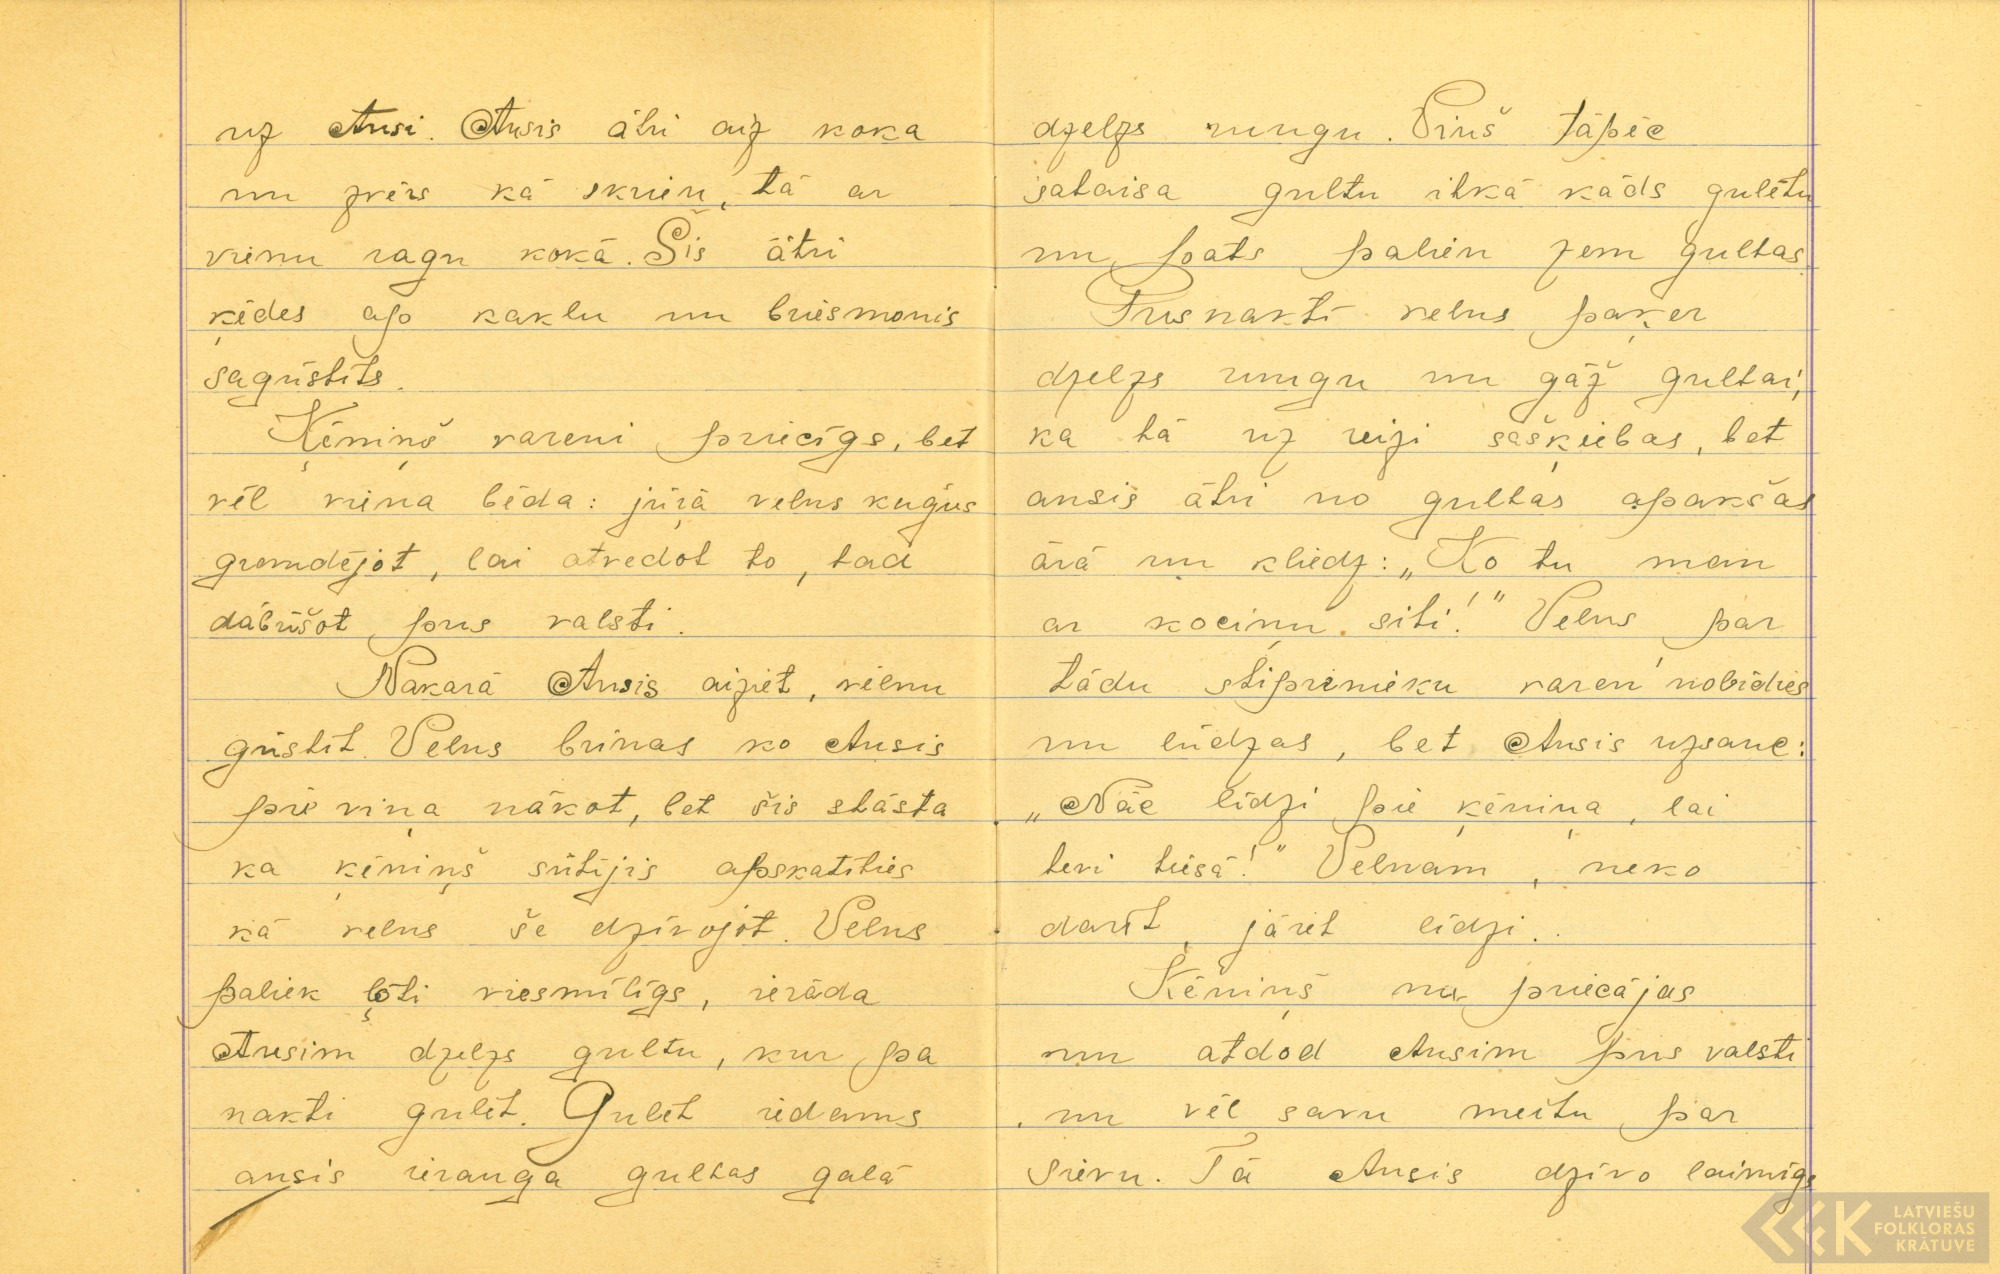 uz Ansi. Ansis ātri aiz koka
un zvērs kā skrien, tā ar
vienu ragu kokā. Šis ātri
ķēdes ap kaklu un briesmonis
sagūstīts.
Ķēniņš vareni priecīgs, bet
vēl viena bēda: jūŗā velns kuģus
gremdējot, lai atvedot to, tad
dabūšot pus valsti.
Vakarā Ansis aiziet, velnu
gūstīt. Velns brīnas ko Ansis
pie viņa nākot, bet šis stāsta
ka ķēniņš sūtījis apskatīties
kā velns še dzīvojot. Velns
paliek ļoti viesmīlīgs, ierāda
Ansim dzelzs gultu, kur pa
nakti gulēt. Gulēt iedams
ansis ierauga gultas galā
dzelzs rungu. Viņš tāpēc
sataisa gultu itkā kāds gulētu
un pats palien zem gultas
Pusnaktī velns paķer
dzelzs rungu un gāž gultai,
ka tā uz reizi sašķiebas, bet
ansis ātri no gultas apakšas
ārā un kliedz: „Ko tu man
ar kociņu siti!" Velns par
tādu stiprinieku varen nobīdies
un lūdzas, bet Ansis uzsauc:
„Nāc līdzi pie ķēniņa, lai
tevi tiesā!" Velnam, neko
darīt, jāiet līdzi..
Ķēniņš nu priecājas
un atdod Ansim pus valsti
un vēl savu meitu par
sievu. Tā Ansis dzīvo laimīgs
LATVIEŠU
FOLKLORAS
KRĀTUVE